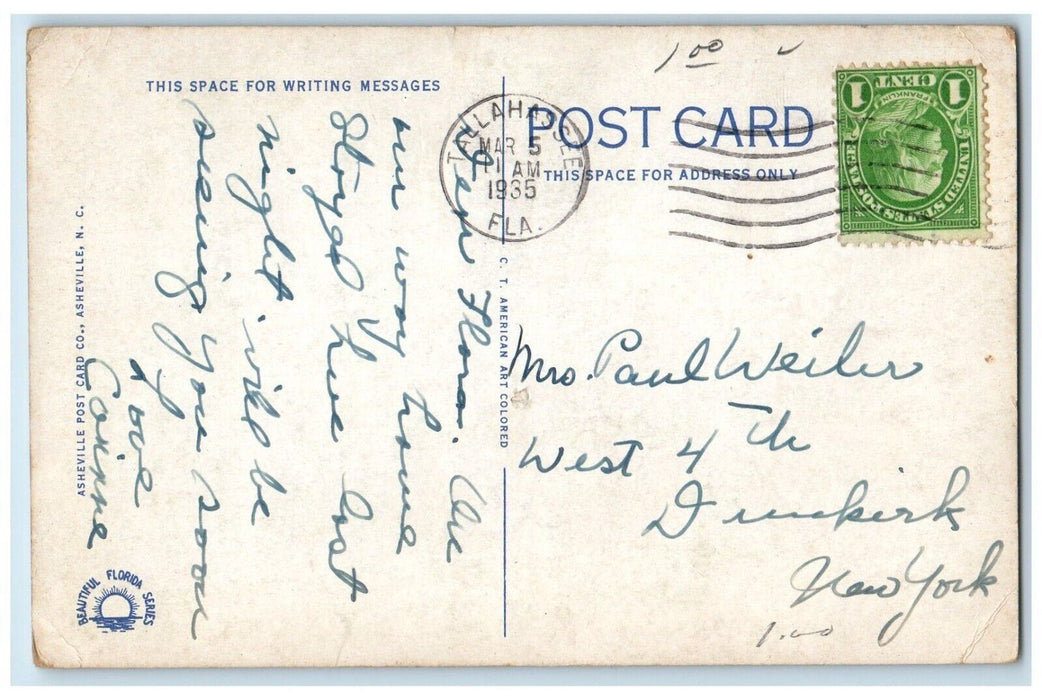 THIS SPACE FOR WRITING MESSAGES
Dear Flora. On
our way home
Stoyed here last
night, will be
seeing you soon
Love
Corinne
ASHEVILLE POST CARD CO., ASHEVILLE, N. C.
BEAUTIFUL FLORIDA SERIES
C. T. AMERICAN ART COLORED
TALLAHASSEE
MAR 5
11 AM
1935
FLA.
1.00
POST CARD
THIS SPACE FOR ADDRESS ONLY
1 CENT 1
FRANKLIN
UNITED STATES POSTAGE
Mrs. Paul Weiler
West 4th
Dunkirk
New York
1.00